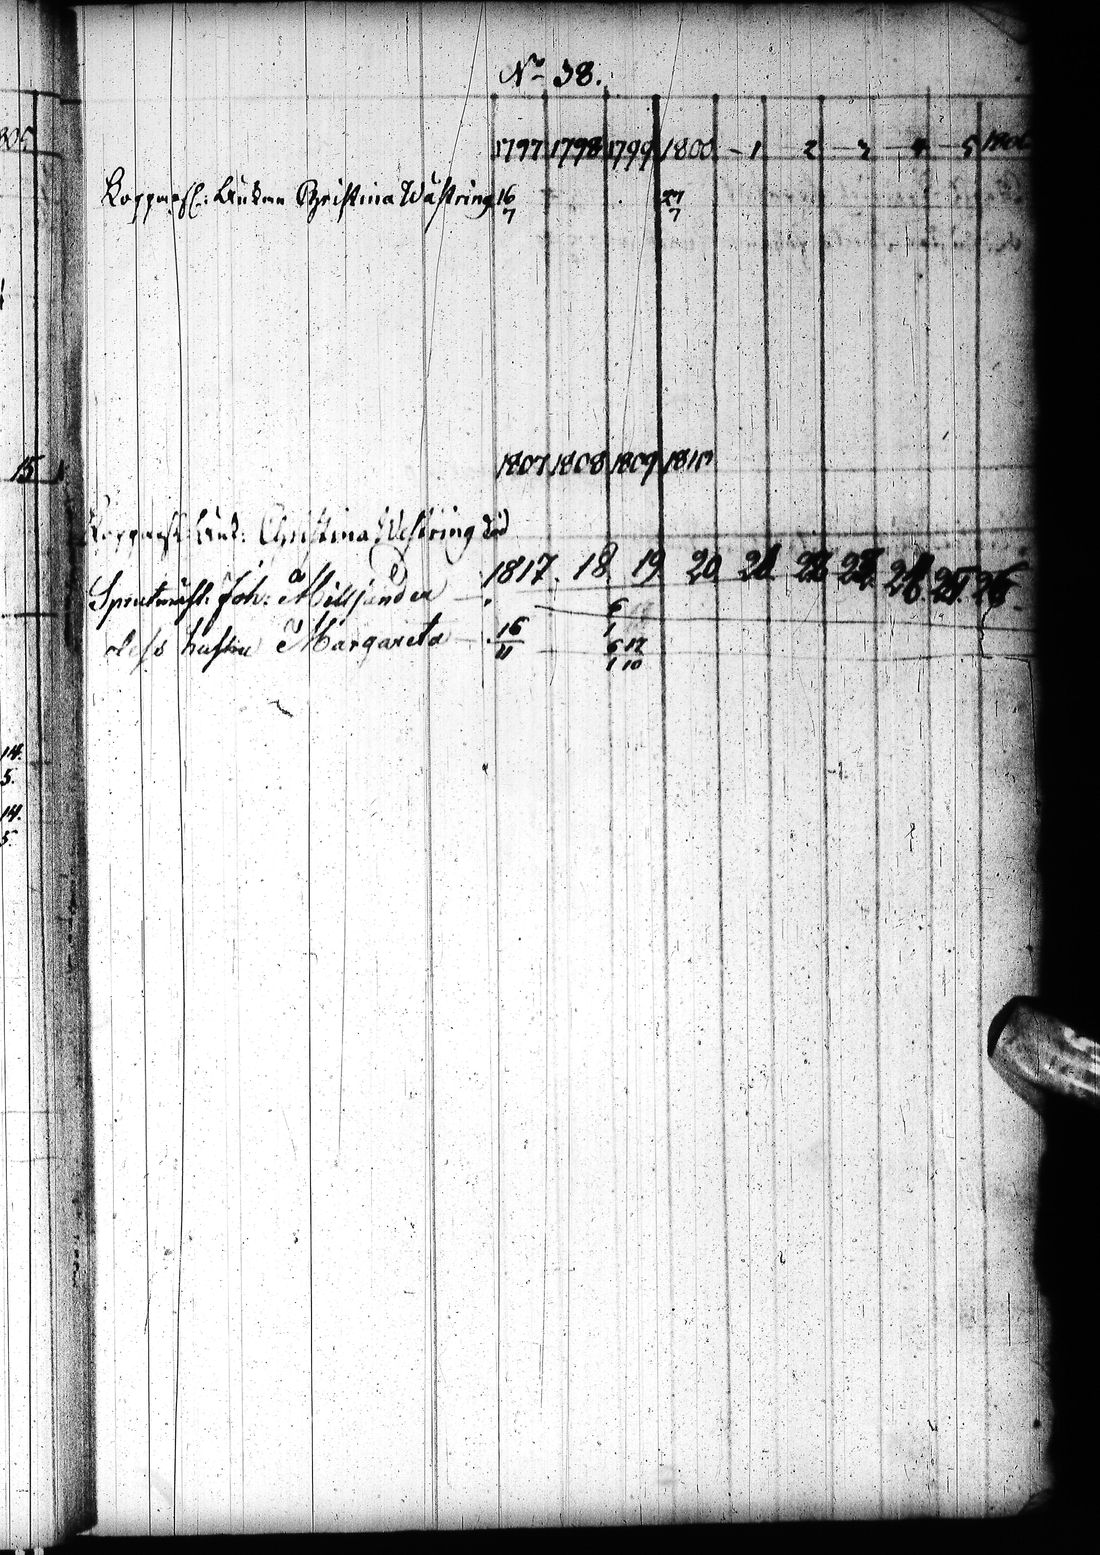 No 38.
1797 1798 1799 1800 - 1 2 - 3 - 4 - 5 1806
Koppersl: Änkan Christina Wästring 16/7 27/7
1807 1808 1809 1810
Koppersl: Änk: Christina Westring död
1817. 18 19 20 21 22 23 24 25 26
Joh: Milljander 6/1
dess hustru Margareta 16/11 6/1 12/10
15
14.
5.
14.
5.